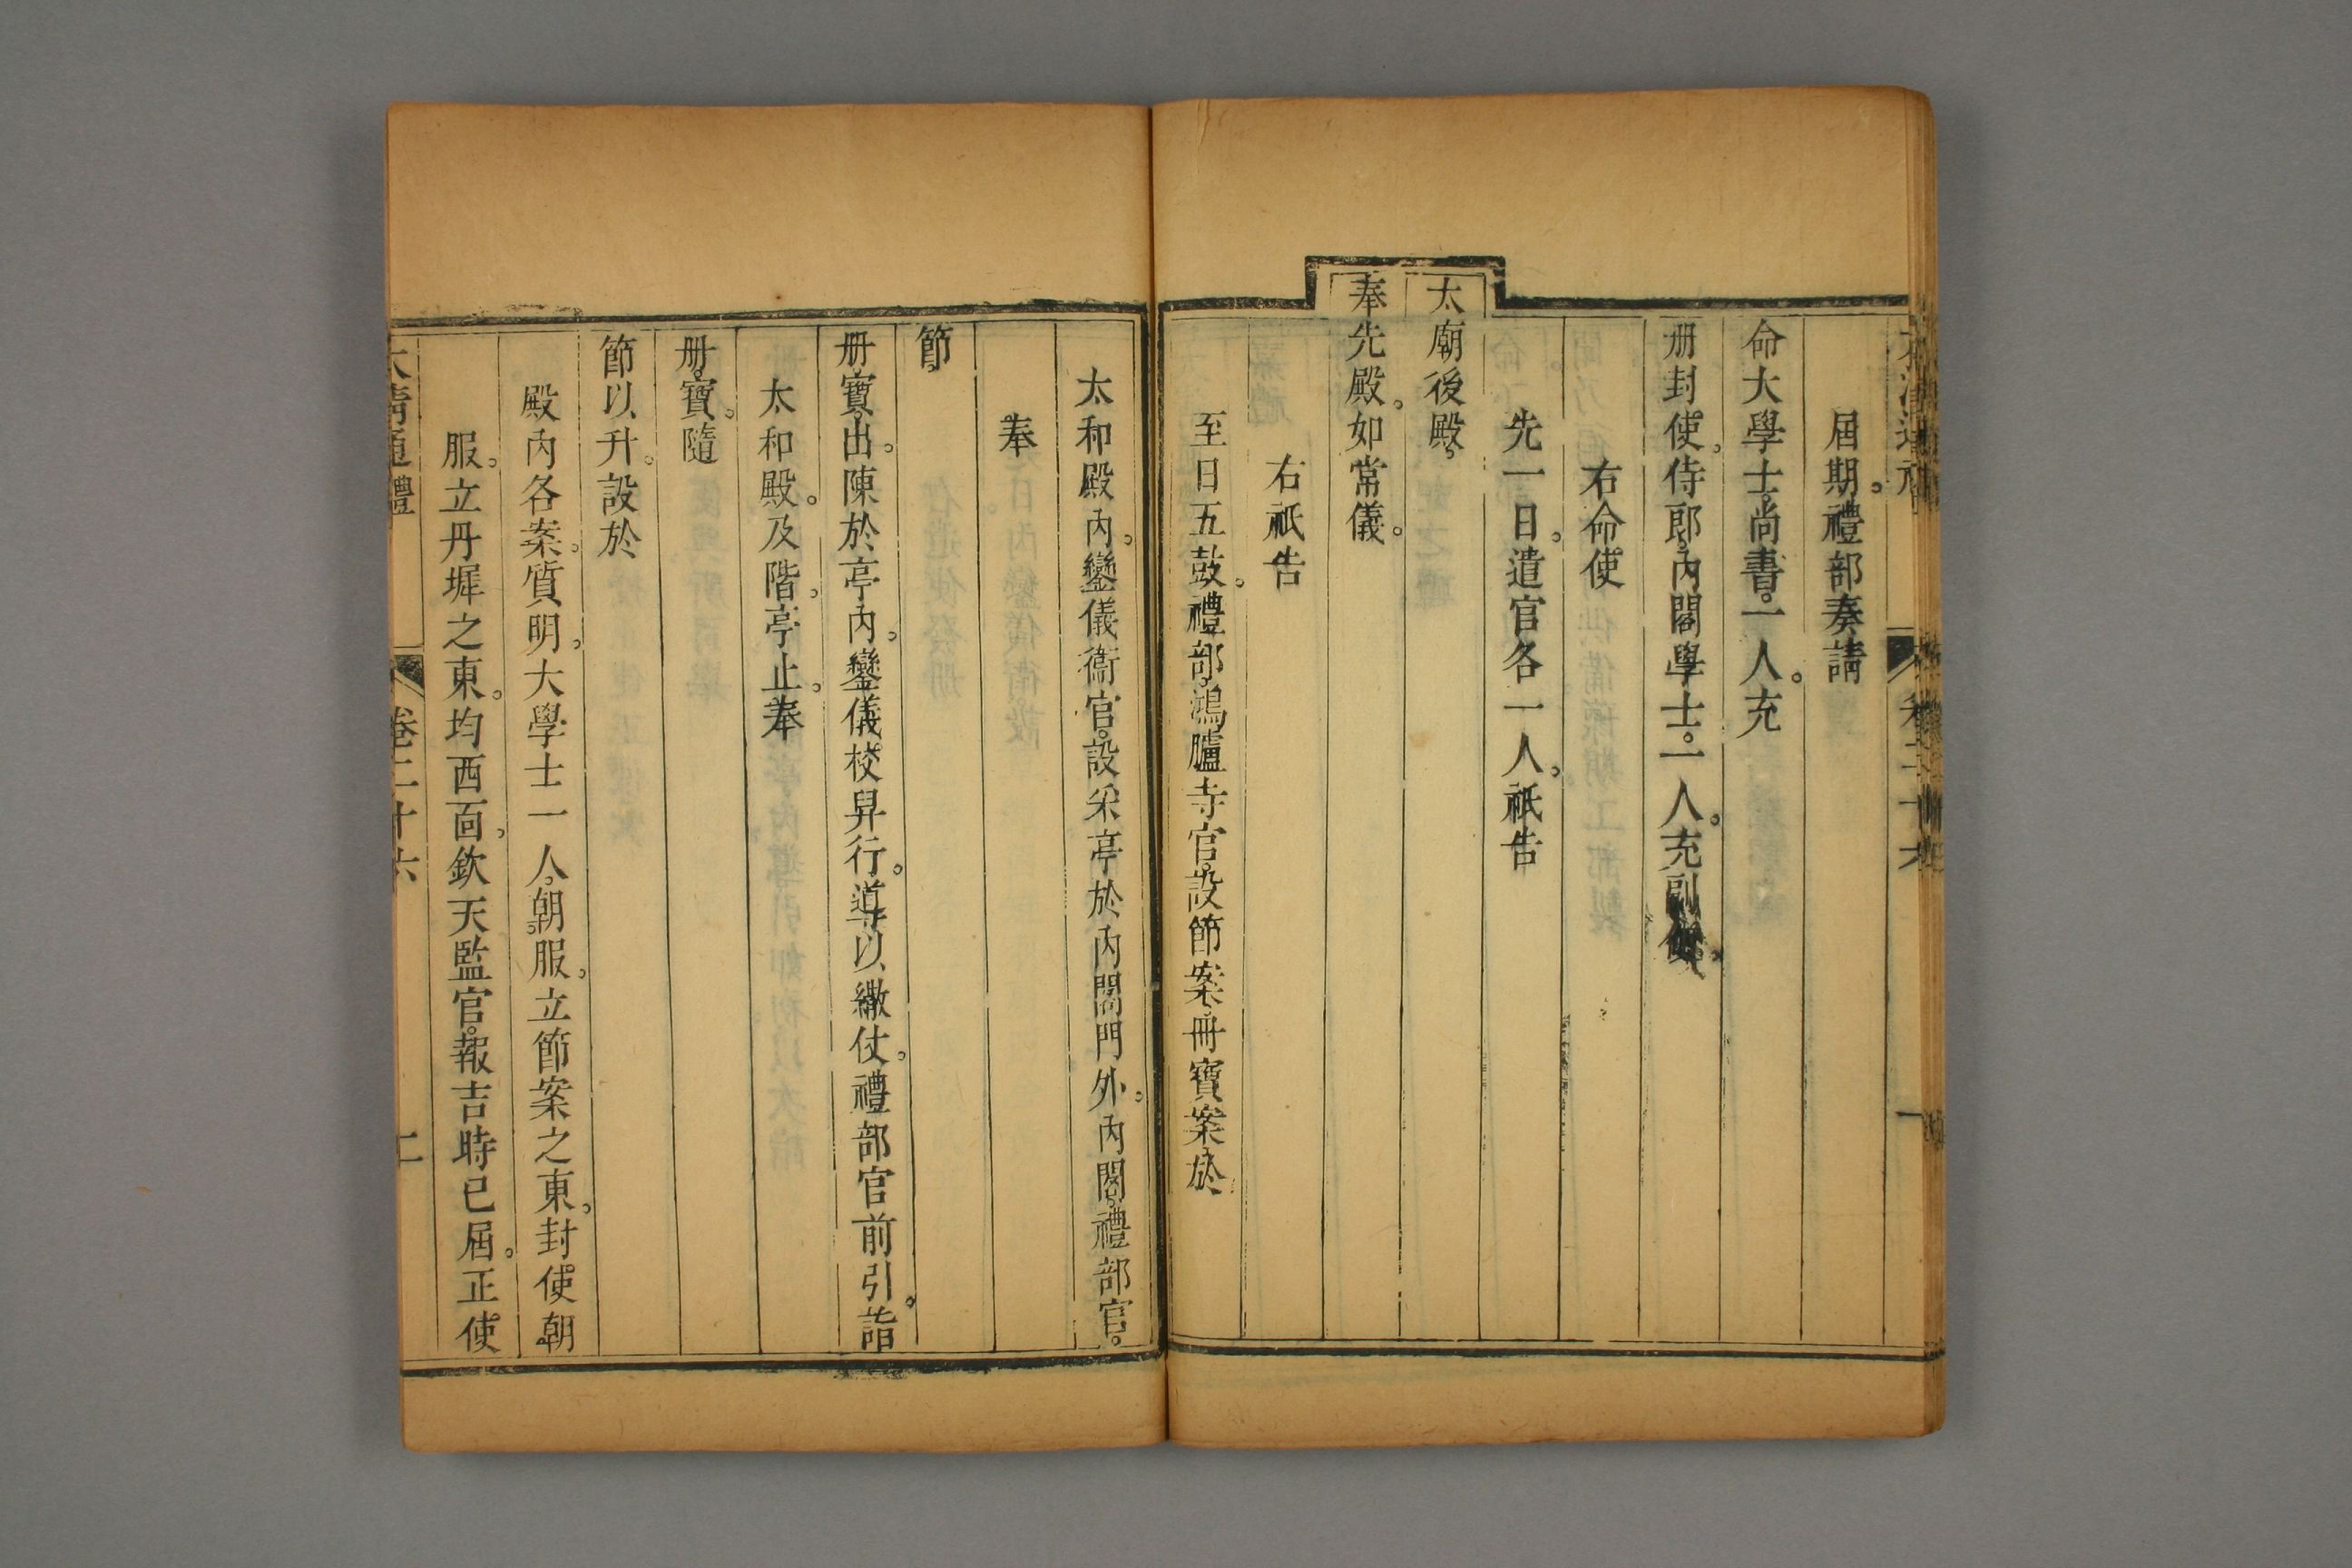 屆期。禮部奏請
命大學士。尚書。一人。充
册封使。侍郎。內閣學士。一人。充副使。
右命使
先一日。遣官各一人。祇告
太廟後殿。
奉先殿。如常儀。
右祇告
至日五鼓。禮部。鴻臚寺官。設節案。冊寶案。於
太和殿內。鑾儀衞官。設采亭於內閣門外。內閣。禮部官。
奉
節。
册。寶。出。陳於亭內。鑾儀校舁行。導以繖仗。禮部官前引。詣
太和殿。及階。亭止。奉
册。寶。隨
節以升。設於
殿內各案。質明。大學士一人。朝服。立節案之東。封使。朝
服。立丹墀之東。均西面。欽天監官。報吉時已屆。正使
大清通禮 卷二十六 二